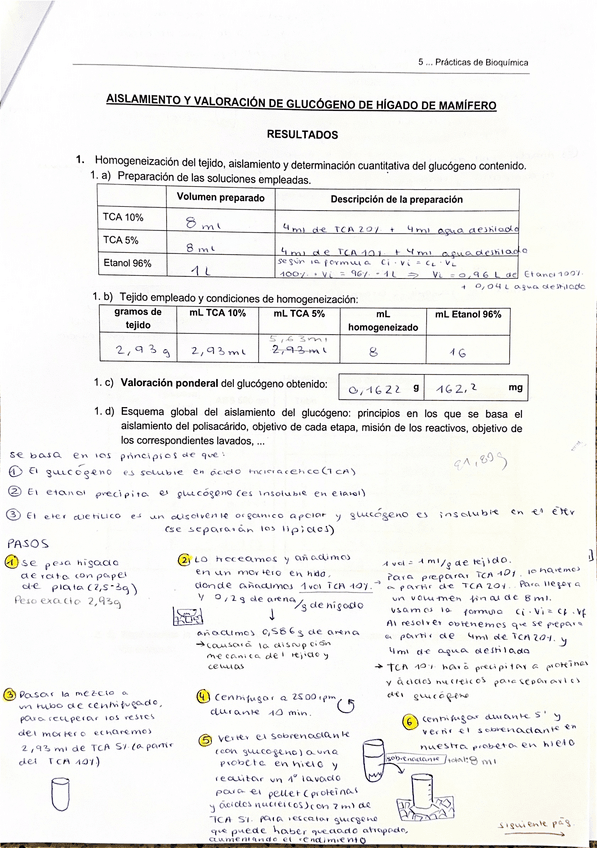 5 ... Prácticas de Bioquímica
AISLAMIENTO Y VALORACIÓN DE GLUCÓGENO DE HÍGADO DE MAMÍFERO
RESULTADOS
1. Homogeneización del tejido, aislamiento y determinación cuantitativa del glucógeno contenido.
1. a) Preparación de las soluciones empleadas.
Volumen preparado Descripción de la preparación
TCA 10% 8 ml 4ml de TCA 20% + 4ml agua destilada
TCA 5% 8 ml 4ml de TCA 10% + 4ml agua destilado
Etanol 96% 1 L según la formula Ci · Vi = Cf · Vf
100% · Vi = 96% · 1L ⇒ Vi = 0,96 L de Etanol 100%
+ 0,04 L agua destilada
1. b) Tejido empleado y condiciones de homogeneización:
gramos de tejido mL TCA 10% mL TCA 5% mL homogeneizado mL Etanol 96%
5,63ml
2,93 g 2,93 ml 2,93 ml 8 16
1. c) Valoración ponderal del glucógeno obtenido: 0,1622 g 162,2 mg
1. d) Esquema global del aislamiento del glucógeno: principios en los que se basa el
aislamiento del polisacárido, objetivo de cada etapa, misión de los reactivos, objetivo de
los correspondientes lavados, ...
se basa en los principios de que:
① El glucógeno es soluble en ácido tricloracético (TCA)
② El etanol precipita el glucógeno (es insoluble en etanol)
③ El eter dietilico es un disolvente organico apolar y glucógeno es insoluble en el éter
(se separarán los lípidos)
PASOS
1 Se pesa hígado
de rata con papel
de plata (2,5-3g)
Peso exacto 2,93g
2 Lo troceamos y añadimos
en un mortero en hielo,
donde añadimos 1 vol TCA 10%
y 0,2g de arena
/g de hígado
añadimos 0,586g de arena
→ causará la disrupción
mecánica del tejido y
células
1 vol = 1ml/g de tejido.
Para preparar TCA 10%, lo haremos
a partir de TCA 20%. Para llegar a
un volumen final de 8ml.
usamos la formula Ci · Vi = Cf · Vf
Al resolver obtenemos que se prepara
a partir de 4ml de TCA 20% y
4ml de agua destilada
→ TCA 10% hará precipitar a proteínas
y ácidos nucleicos para separarlos
del glucógeno
3 Pasar la mezcla a
un tubo de centrifugado,
para recuperar los restes
del mortero echaremos
2,93 ml de TCA 5% (a partir
del TCA 10%)
4 Centrifugar a 2500 rpm
durante 10 min.
5 Verter el sobrenadante
(con glucógeno) a una
probeta en hielo y
realizar un 1º lavado
para el pellet (proteínas
y ácidos nucleicos) con 2ml de
TCA 5% para rescatar glucógeno
que puede haber quedado atrapado,
aumentando el rendimiento
6 Centrifugar durante 5' y
verter el sobrenadante en
nuestra probeta en hielo
sobrenadante total: 8 ml
siguiente pág